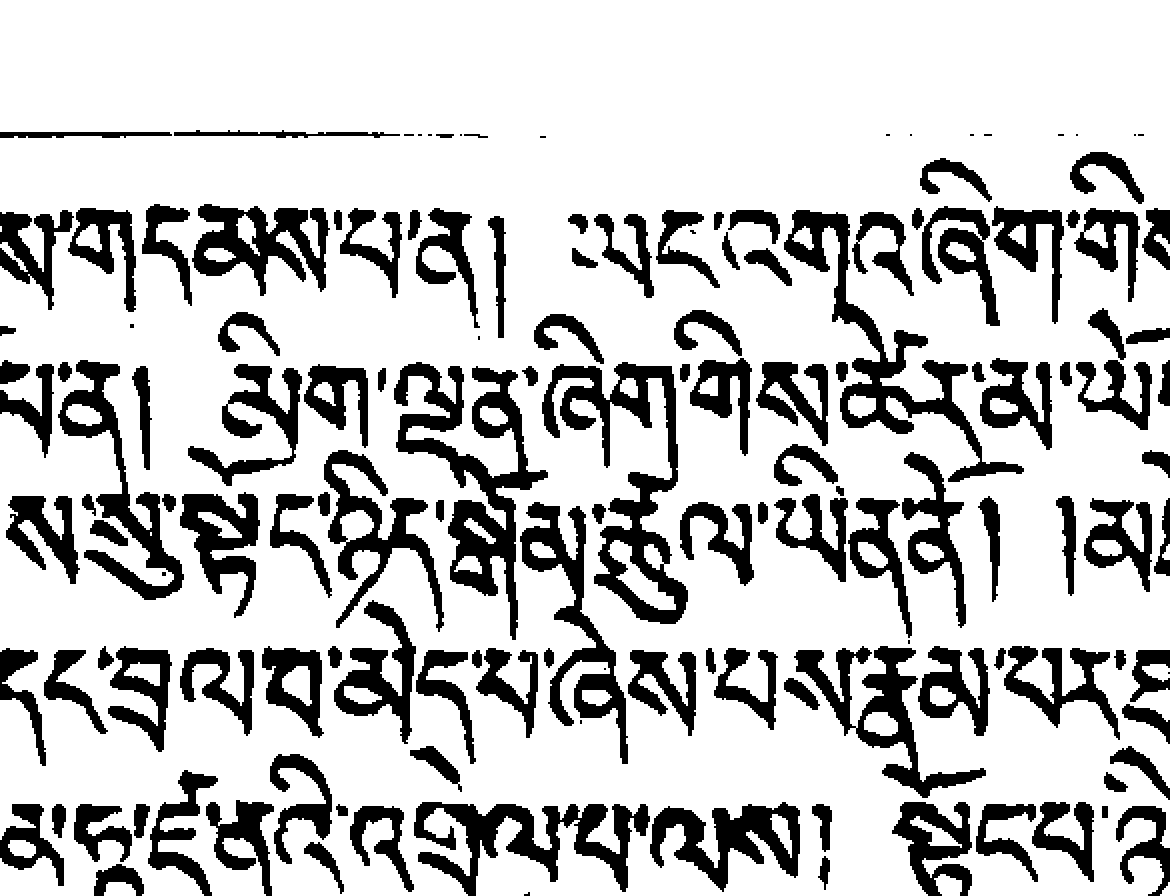 ས་གདམས་པ་ན། ཡང་འགའ་ཞིག་གིས
པ་ན། མིག་ལྡན་ཞིག་གིས་ཚོར་མ་ཡོ
ས་སུ་སྟོང་ཉིད་སྒོམ་ཚུལ་ཡིན་ནོ། །མ
དང་བྲལ་བ་མེད་པ་ཞེས་པས་རྣམ་པར
འགྲེལ་པ་ལས། སྟོང་པ་ཉི